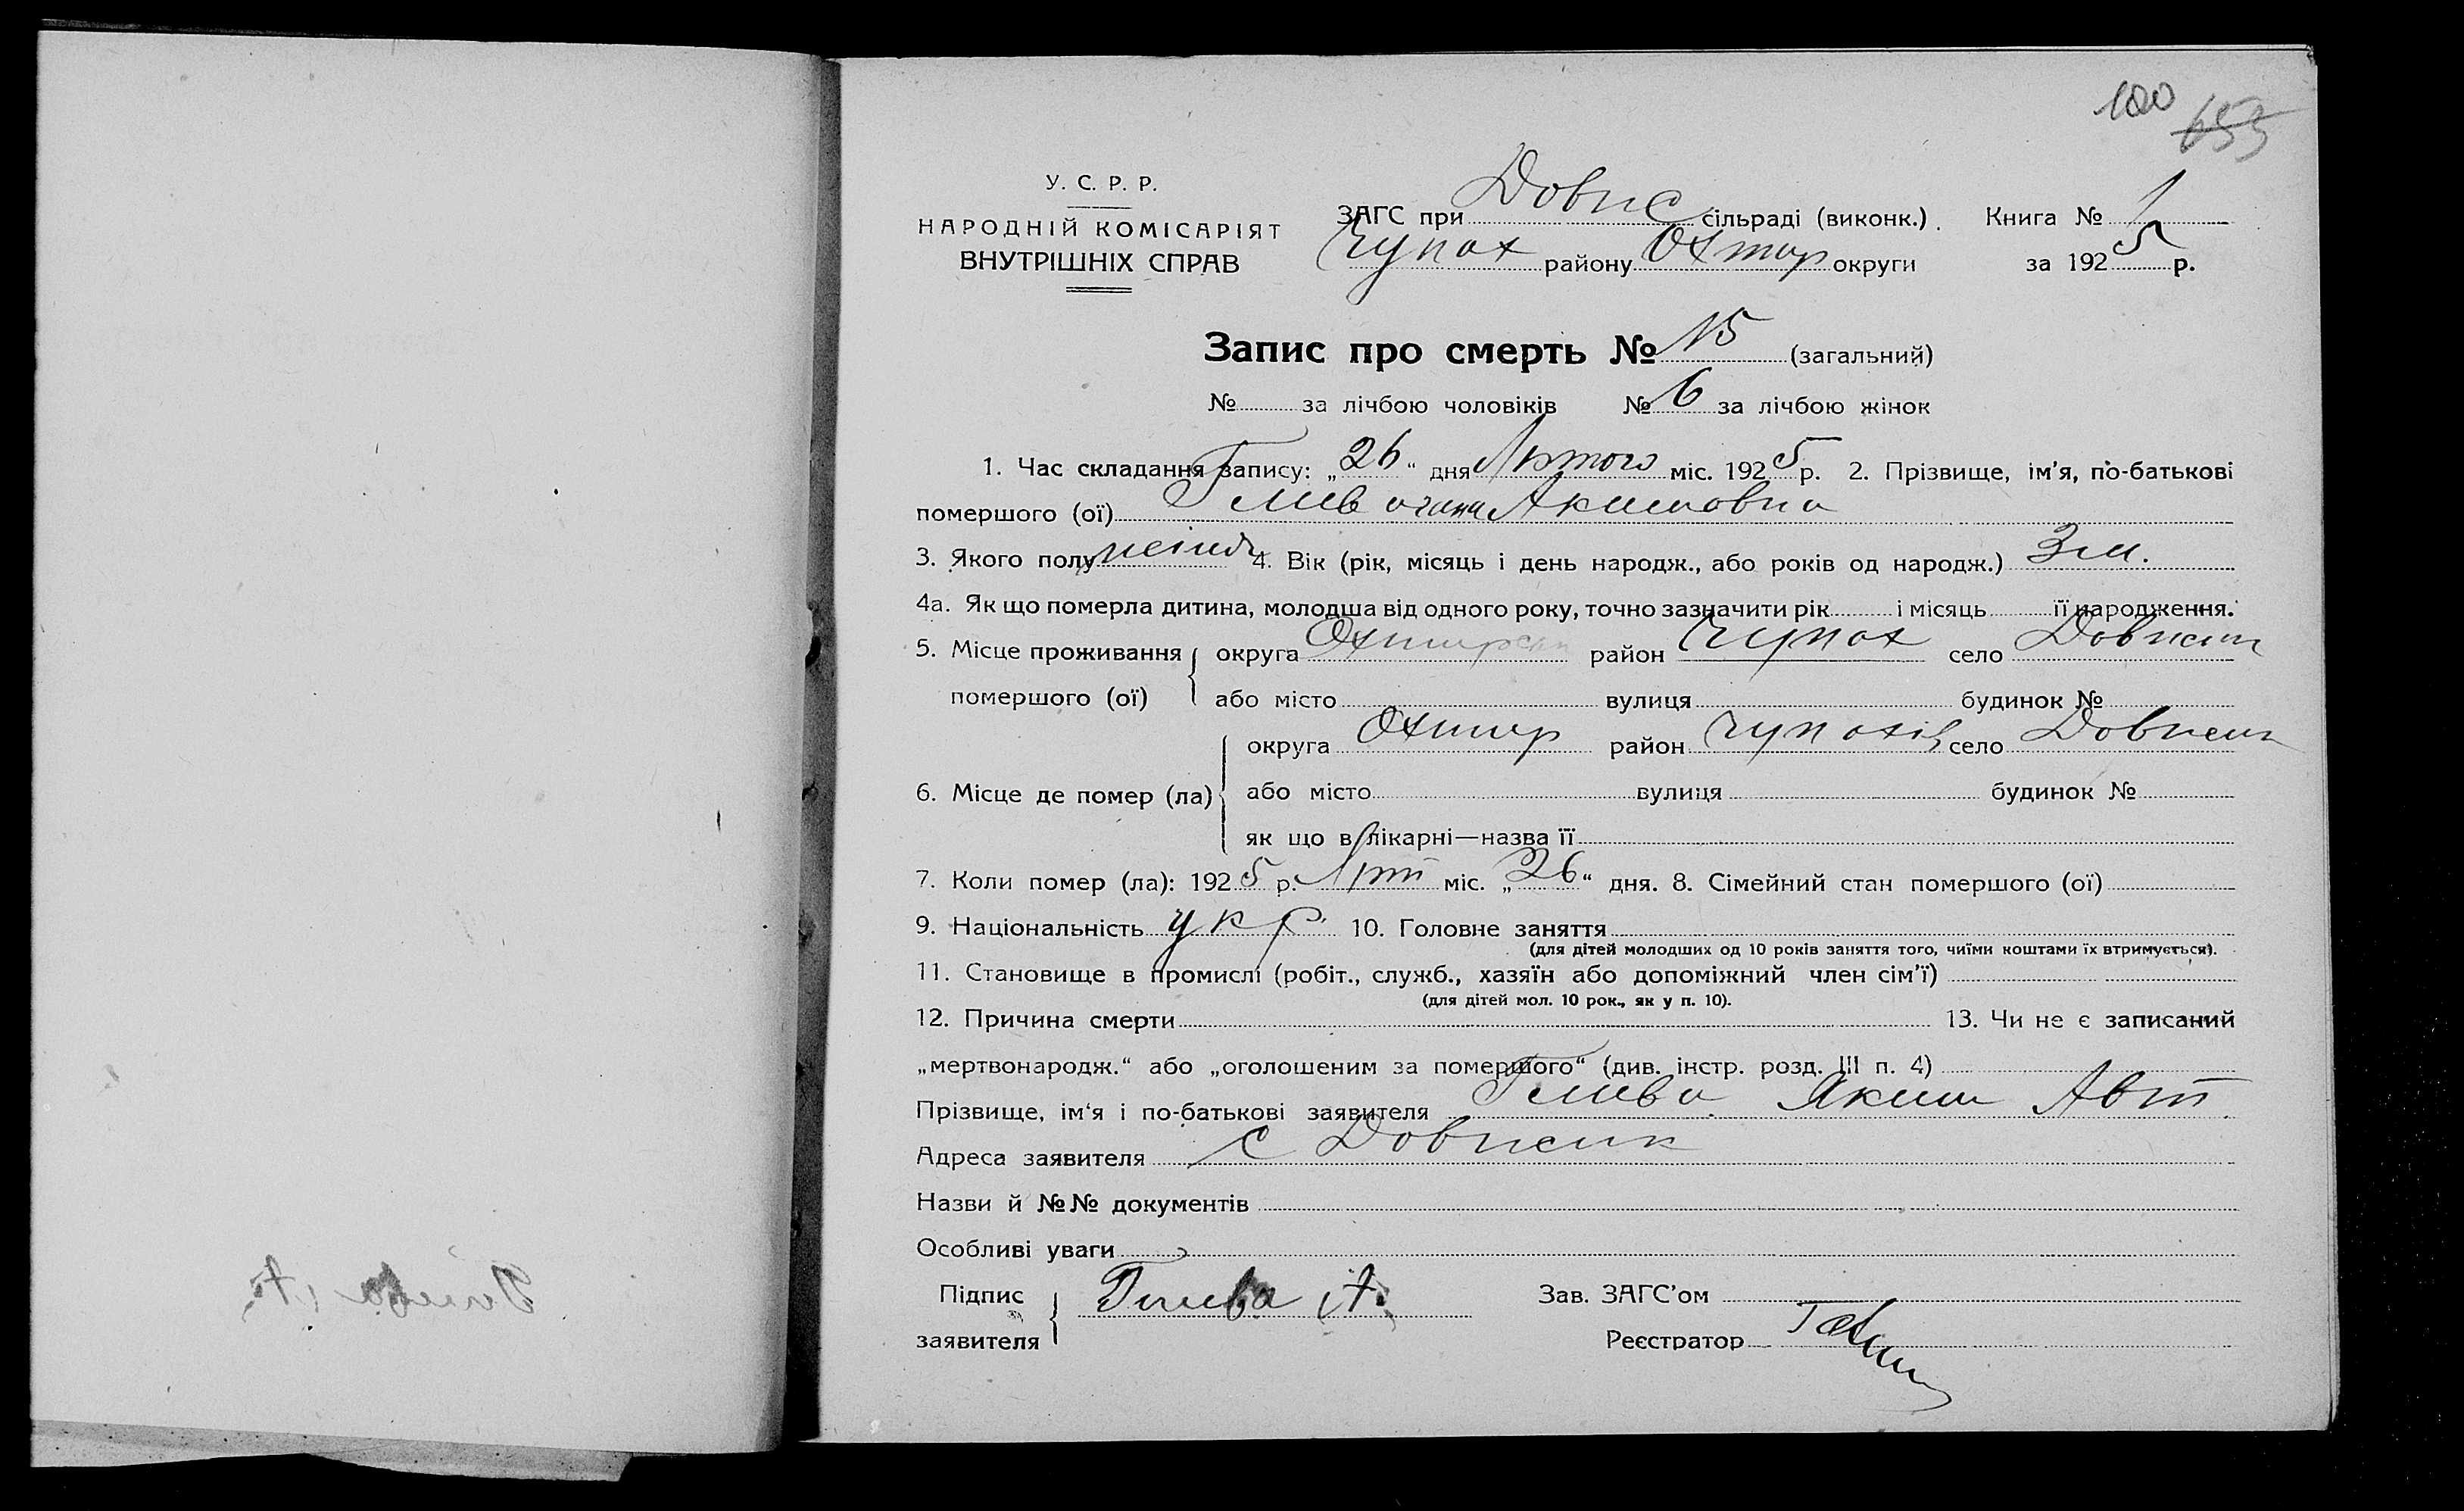 100 653
У. С. Р. Р.
НАРОДНІЙ КОМІСАРІЯТ
ВНУТРІШНІХ СПРАВ
ЗАГС при Довж С сільраді (виконк.). Книга № 1
Чупах району Охтир округи за 1925 р.
Запис про смерть № 15 (загальний)
№ за лічбою чоловіків № 6 за лічбою жінок
1. Час складання запису: „26“ дня Лютого міс. 1925 р. 2. Прізвище, ім'я, по-батькові
помершого (ої) Акимовна
3. Якого полу жіноч 4. Вік (рік, місяць і день народж., або років од народж.) 3 м.
4а. Як що померла дитина, молодша від одного року, точно зазначити рік і місяць її народження.
5. Місце проживання округа Охтирськ район Чупах село Довжик
помершого (ої) або місто вулиця будинок №
округа Охтир район Чупахів село Довжик
6. Місце де помер (ла) або місто вулиця будинок №
як що в лікарні—назва її
7. Коли помер (ла): 1925 р. Лют міс. „26“ дня. 8. Сімейний стан помершого (ої)
9. Національність укр. 10. Головне заняття
(для дітей молодших од 10 років заняття того, чиїми коштами їх втримується).
11. Становище в промислі (робіт., служб., хазяїн або допоміжний член сім'ї)
(для дітей мол. 10 рок., як у п. 10).
12. Причина смерти 13. Чи не є записаний
„мертвонародж.“ або „оголошеним за помершого“ (див. інстр. розд. III п. 4)
Прізвище, ім'я і по-батькові заявителя Глива Яким Авт.
Адреса заявителя с Довжик
Назви й №№ документів
Особливі уваги
Підпис
заявителя Глива А.
Зав. ЗАГС'ом
Реєстратор